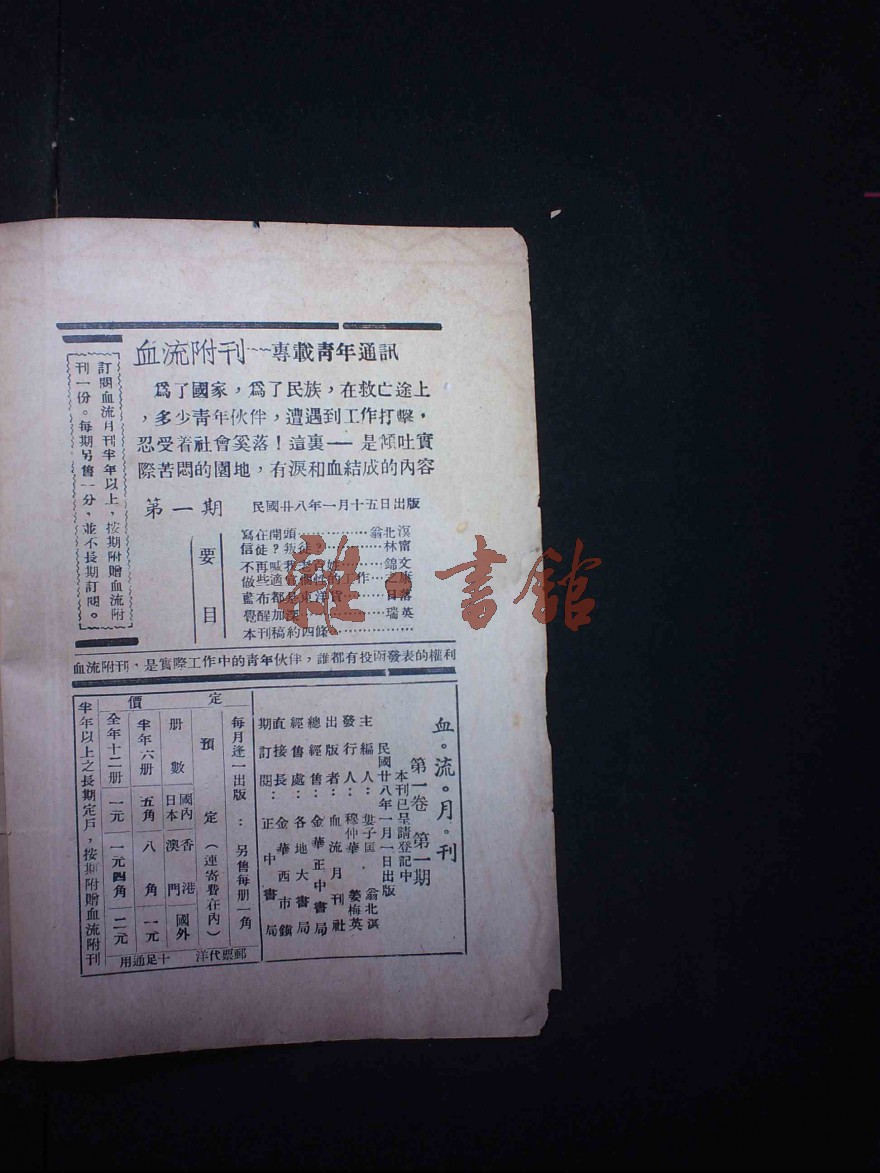 血流附刊~~專載靑年通訊
爲了國家，爲了民族，在救亡途上
，多少靑年伙伴，遭遇到工作打擊，
忍受着社會奚落！這裏——是傾吐實
際苦悶的園地，有淚和血結成的內容
第一期　民國廿八年一月十五日出版
要目
寫在開頭……………翁北溟
信徒？叛徒？……………林甯
不再喊我老百姓……………錦文
做些適宜個性的工作…之康
藍布都是東洋貨……………日落
覺醒加深……………瑞英
本刊稿約四條……………
訂閱血流月刊半年以上，按期附贈血流附
刊一份。每期另售一分，並不長期訂閱。
血流附刊、是實際工作中的靑年伙伴，誰都有投函發表的權利
血。流。月。刊
第一卷　第一期
本刊已呈請登記中
民國廿八年一月一日出版
主編人：婁子匡．翁北溟
發行人：穆仲華　婁梅英
出版者：血流月刊社
總經售：金華正中書局
經售處：各地大書局
直接長期訂閱：金華西市鎮正中書局
定價
每月逢一出版：另售每册一角
預定（連寄費在內）
册數　國內日本　香港澳門　國外
半年六册　五角　八角　一元
全年十二册　一元　一元四角　二元
郵票代洋　十足通用
半年以上之長期定戶，按期附贈血流附刊
雜·書館